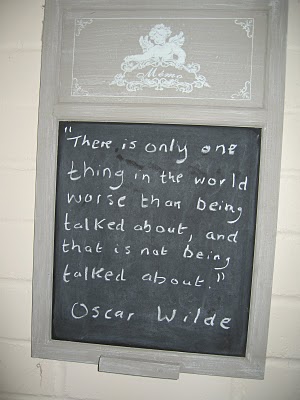 Mémo
"There is only one
thing in the world
worse than being
talked about, and
that is not being
talked about."
Oscar Wilde